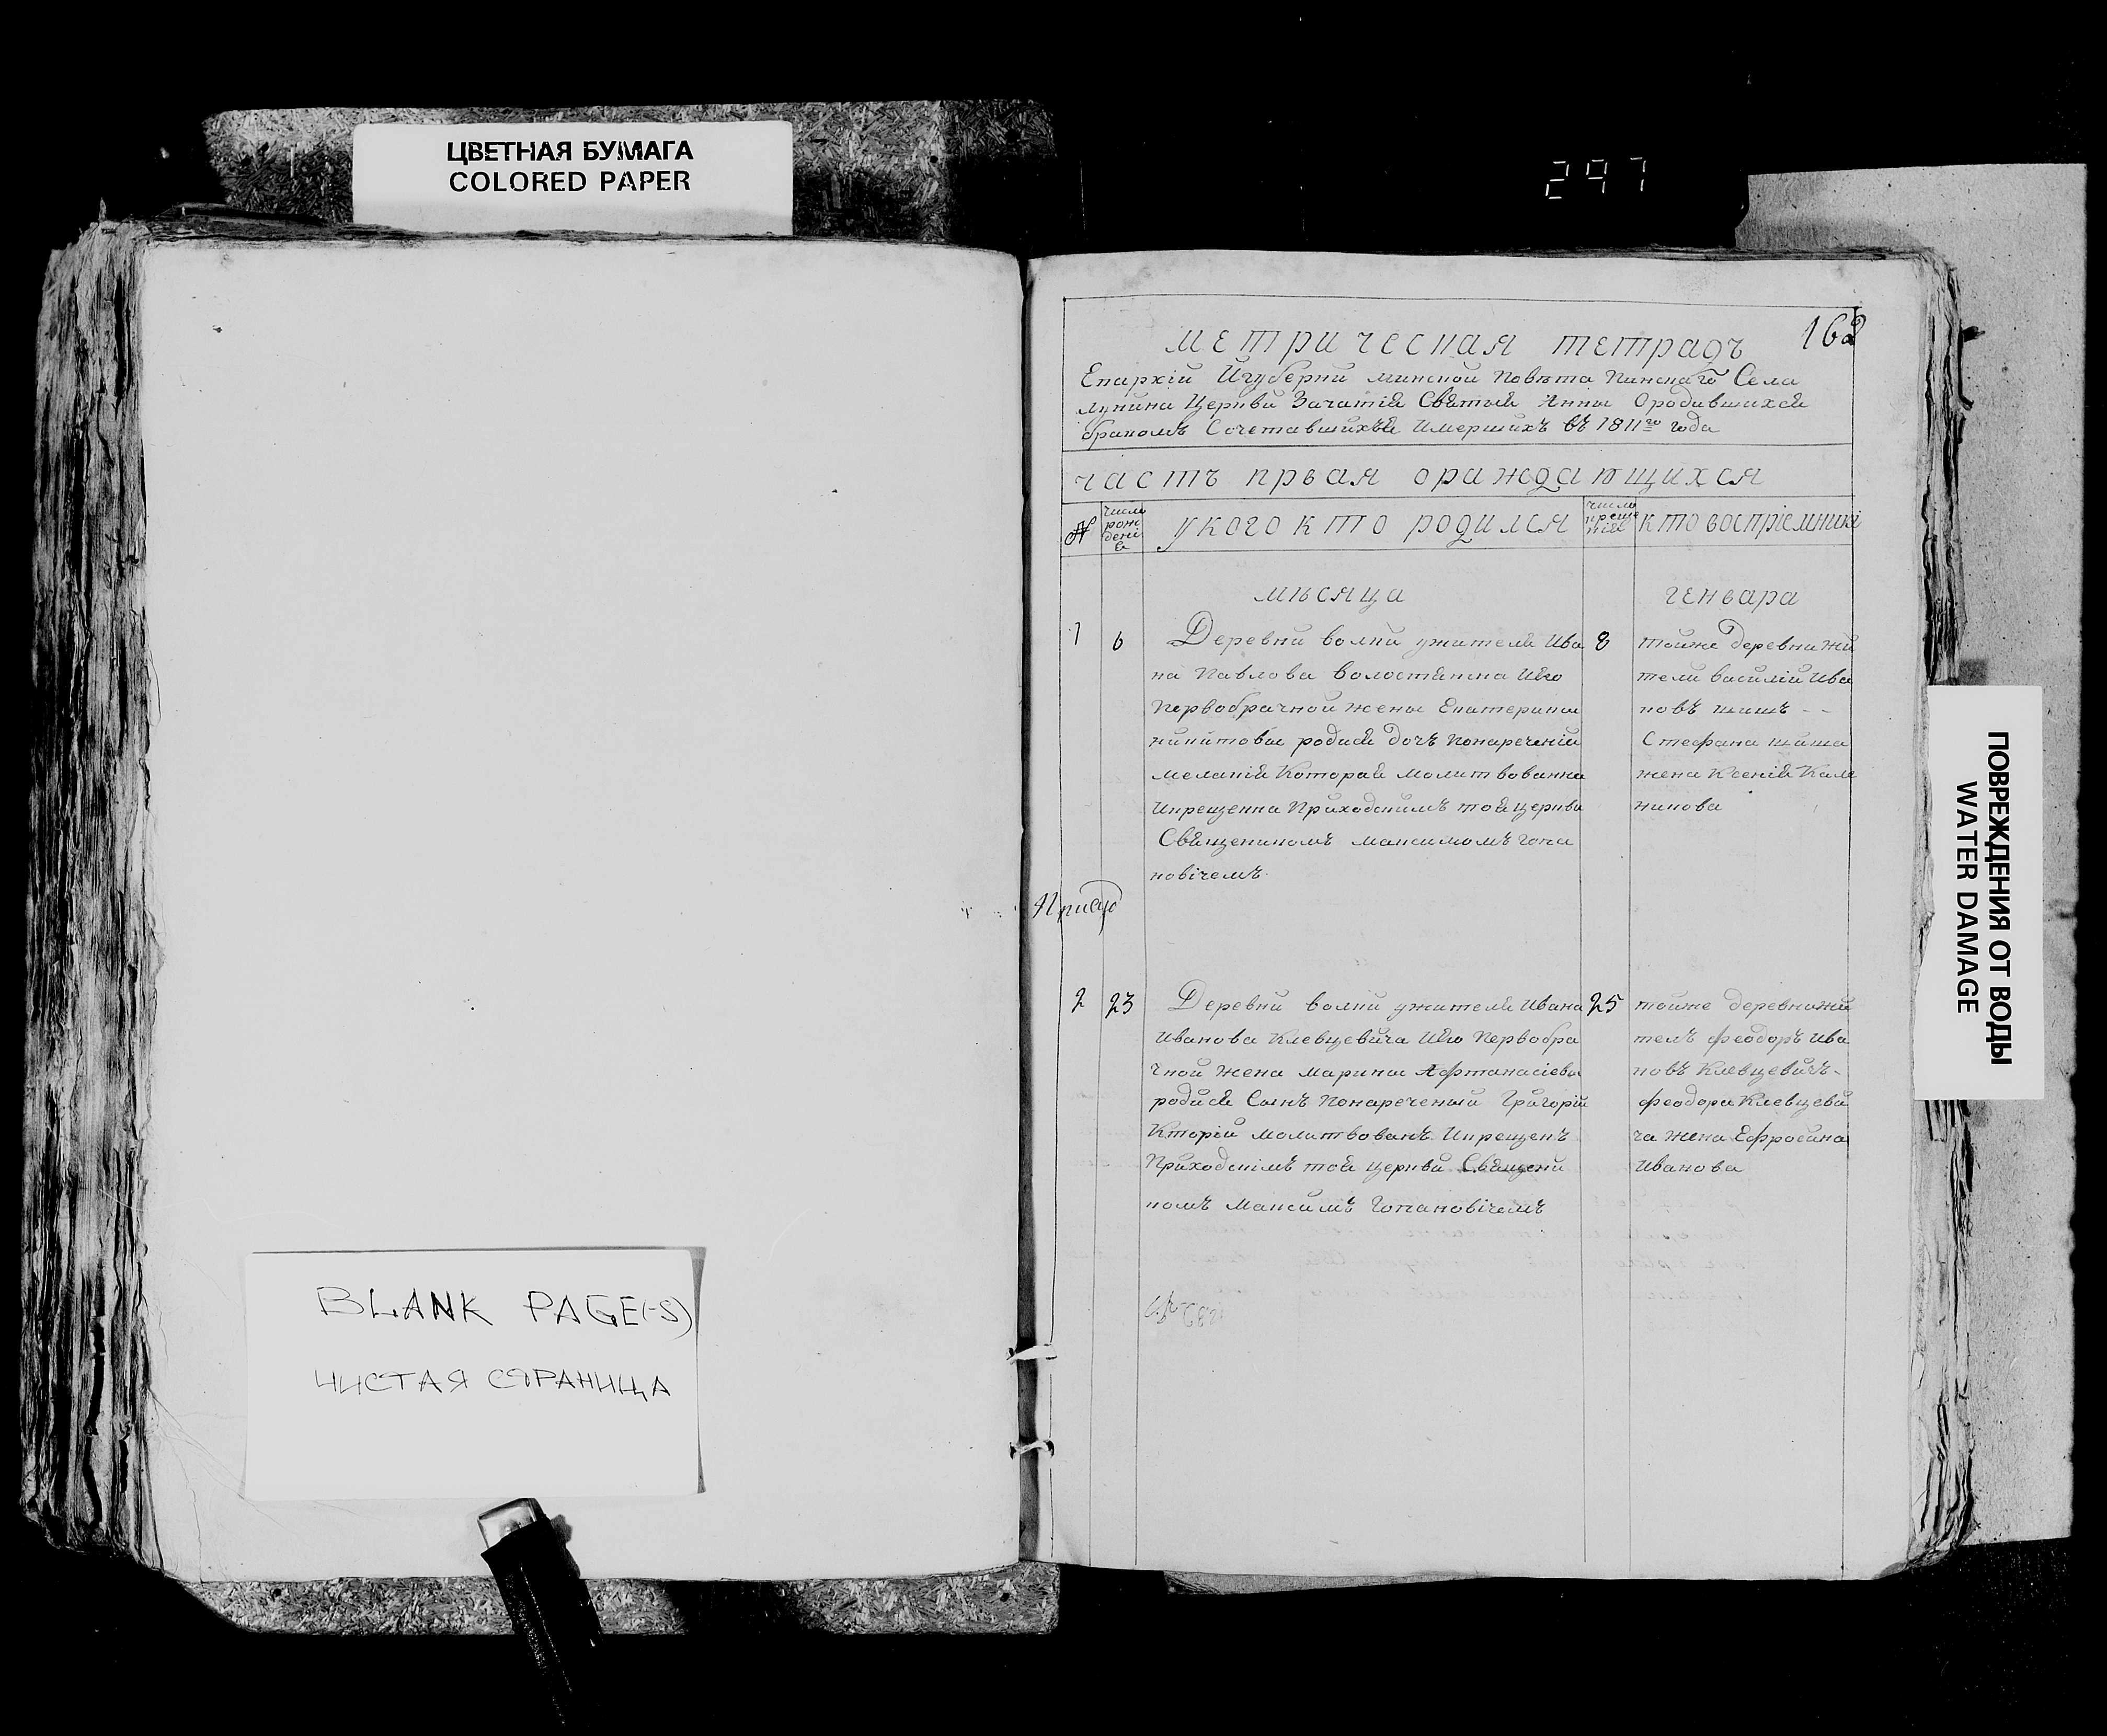 ЦВЕТНАЯ БУМАГА
COLORED PAPER
297
BLANK PAGE(-S)
ЧИСТАЯ СТРАНИЦА
162
метрическая тетрадъ
Епархіи Игуберніи минской Повѣта Пинскаго Села
лунина Церкви Зачатія Святыя Анны Ородившихся
бракомъ Сочетавшихъся Имершихъ въ 1811го года
частъ првая оражда ющихся
№
число рождения
укого кто родился
число креще нія
кто воспріемники
мѣсяца
генвара
1
6
Деревни волки ужителя Ива
на Павлова волостника Иего
Первобрачной жены Екатерины
никитовы родися дочъ Понареченія
меланія Которая молитвованна
Икрещенна Приходскимъ тоя церкви
Священикомъ максимомъ
новічемъ
8
тояже деревни жи
тели василій Ива
новъ шишъ - -
Стефана шиша
жена Ксенія Кали
никова
2
23
Деревни волки ужителя Ивана
Иванова Клевцевича Иего Первобра
чной жена марины Афтанасіевы
родися Сынъ Понареченый Григорій
Кторій молитвованъ Икрещенъ
Приходскімъ тоя церкви Священи
комъ Максимъ
25
тояже деревнижи
телъ феодоръ Ива
новъ Клевцевичъ-
феодора Клевцеви
ча жена Ефросина
Иванова
ПОВРЕЖДЕНИЯ ОТ ВОДЫ
WATER DAMAGE